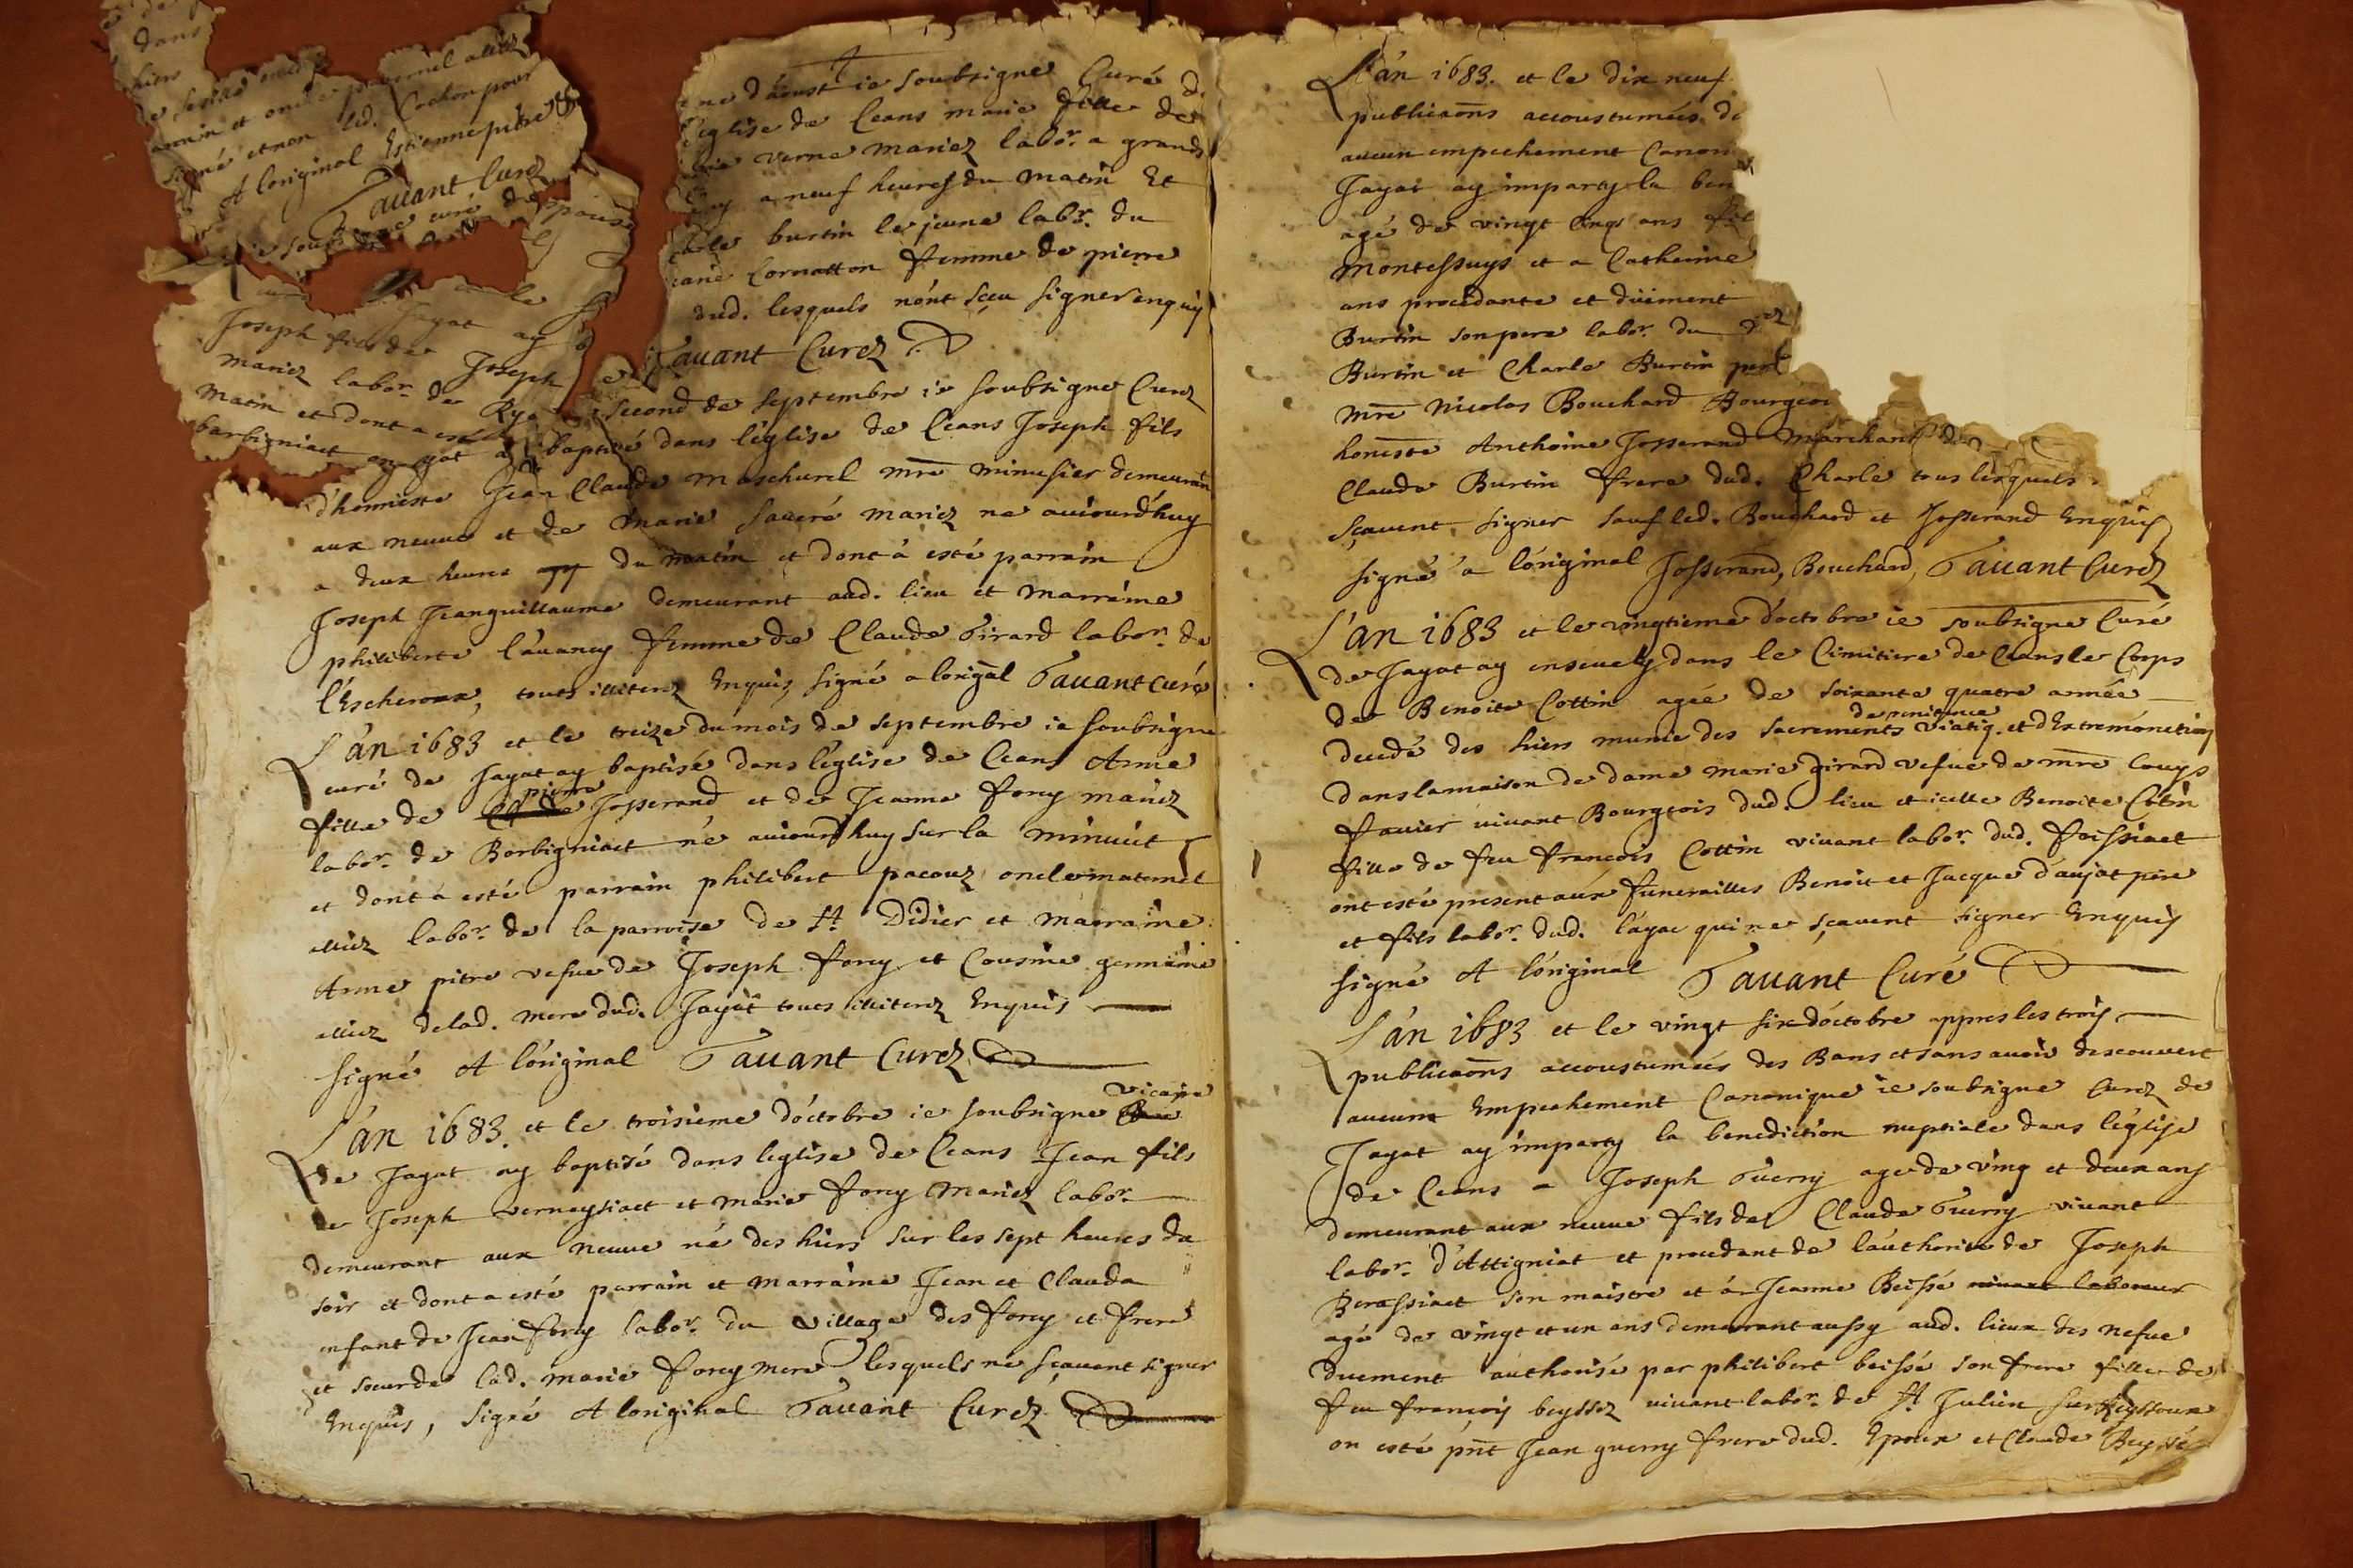 dans
hiers
signé et non led. Cochon pour
A loriginal Estienne pitre
Tauant Curez
ie soub
Jayat ay
Joseph fils de Joseph
mariez labor. de Rye
matin et dont a esté
barbigniact
d'aoust ie soubsigne Curé
eglise de Ceans marie fille de
verne mariez labor. a grands
a neuf heures du matin Et
burtin le jeune labor. du
Cornatton femme de pierre
dud. lesquels n'ont sceu signer enquis
Tauant Curez
second de septembre ie soubsigne Curez
baptisé dans l'église de Ceans Joseph fils
d'honneste Jean Claude Maschurel mre minusier demeurant
aux neuue et de Marie saueré mariez ne auiourd'huy
a deux heures du matin et dont a esté parrain
Joseph Jeanguillaume demeurant aud. lieu et marraine
philiberte l'auancy femme de Claude Girard labor. de
l'Escheroux, touts illiterez Enquis, signé a lorignal Tauant curé
L'an 1683 et le treize du mois de septembre ie soubsigne
curé de Jayat ay baptisé dans l'église de Ceans Anne
fille de pierre Josserand et de Jeanne forey mariez
labor. de Borbigniact né auiourd'huy sur la minuict
et dont a esté parrain philibert pacouz oncle maternel
alliez labor. de la parroise de St Didier et marraine
Anne pitre vefue de Joseph forey et Cousine germaine
alliez delad. mere dud. Jayat touts illiterez Enquis
signé A l'original Tauant Curez
L'an 1683. et le troisieme d'octobre ie soubsigne vicaire
de Jayat ay baptisé dans leglise de Ceans Jean fils
de Joseph verneysiact et marie forey mariez labor.
demeurant aux neuue né des hiers sur les sept heures du
soir et dont a esté parrain et marraine Jean et Clauda
enfant de Jean forey labor. du village des forey et frere
et soeur de lad. marie forey mere lesquels ne sçauent signer
Enquis, signé A loriginal Tauant Curez
L'an 1683. et le dix neuf
publicaons accoustumées d
aucun empechement Canon
Jayat ay imparty la ben
agé de vingt cinq ans fil
montessuys et a Catherine
ans procedante et düement
Burtin son pere labor. du
Burtin et Charle Burtin
mre Nicolas Bouchard Bourgeoi
honeste Anthoine Josserand Marchand
Claude Burtin frere dud. Charle tous lesquels
sçauent signer sauf led. Bouchard et Josserand Enquis
signé a l'original Josserand, Bouchard, Tauant Curez
L'an 1683 et le vingtieme d'octobre ie soubsigne Curé
de Jayat ay enseuely dans le Cimitiere de Ceans le Corps
de Benoite Cottin agée de soixante quatre année
decedé des hiers munie des sacrements de penitence viatiq. et d'Extremonction
dans la maison de dame marie Girard vefue de mre Louys
fauier viuant Bourgeois dud. lieu et icelle Benoite Cotin
fille de feu françois Cottin viuant labor. dud. foissiact
ont esté present aux funerailles Benoit et Jacque d'aujat pere
et fils labor. dud. qui ne sçauent signer Enquis
signé A l'original Tauant Curé
L'an 1683 et le vingt six d'octobre appres les trois
publicaons accoustumées des Bans et sans auoir descouuert
aucunt Empechement Canonique ie soubsigne Curez de
Jayat ay imparty la benediction nuptiale dans l'église
de Ceans a Joseph Guerry age de ving et deux ans
demeurant aux neuue fils de Claude Guerry viuant
labor. d'Attigniat et procedant de l'authorite de Joseph
Beraissiact son maistre et a Jeanne Beissé viuant laboreur
agé de vingt et un ans demeurant aussy aud. lieux des nefue
duement authorisé par philibert beissé son frere fille de
feu françois beyssez viuant labor. de St Julien sur Reyssouze
on esté pnt Jean guerry frere dud. Epoux et Claude Beyssé